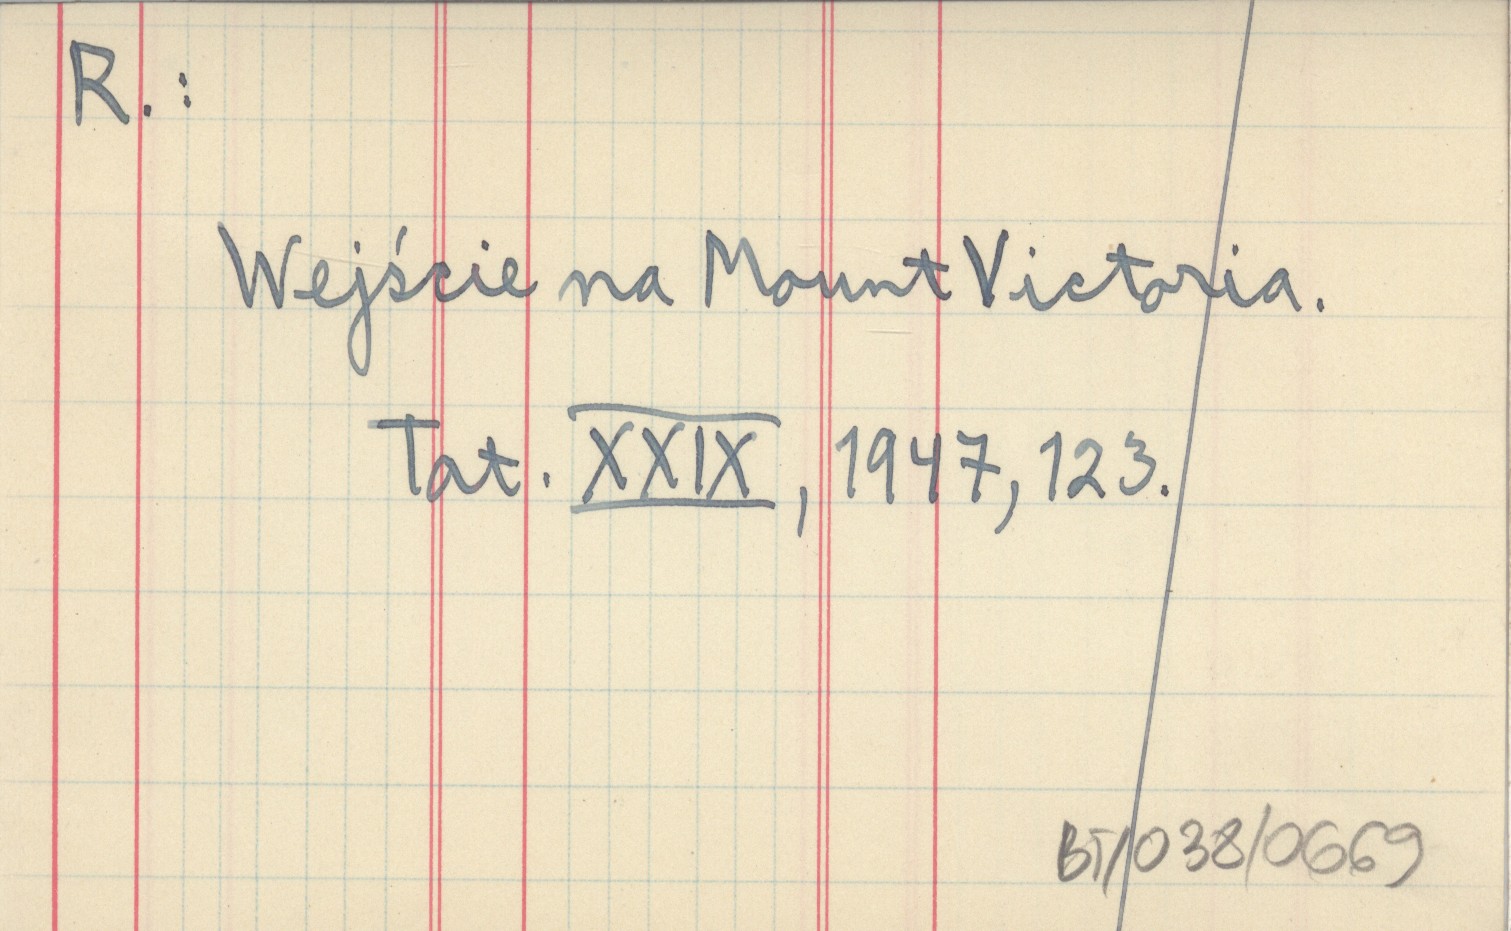 R.:
Wejście na Mount Victoria.
Tat. XXIX, 1947, 123.
BT/038/0669